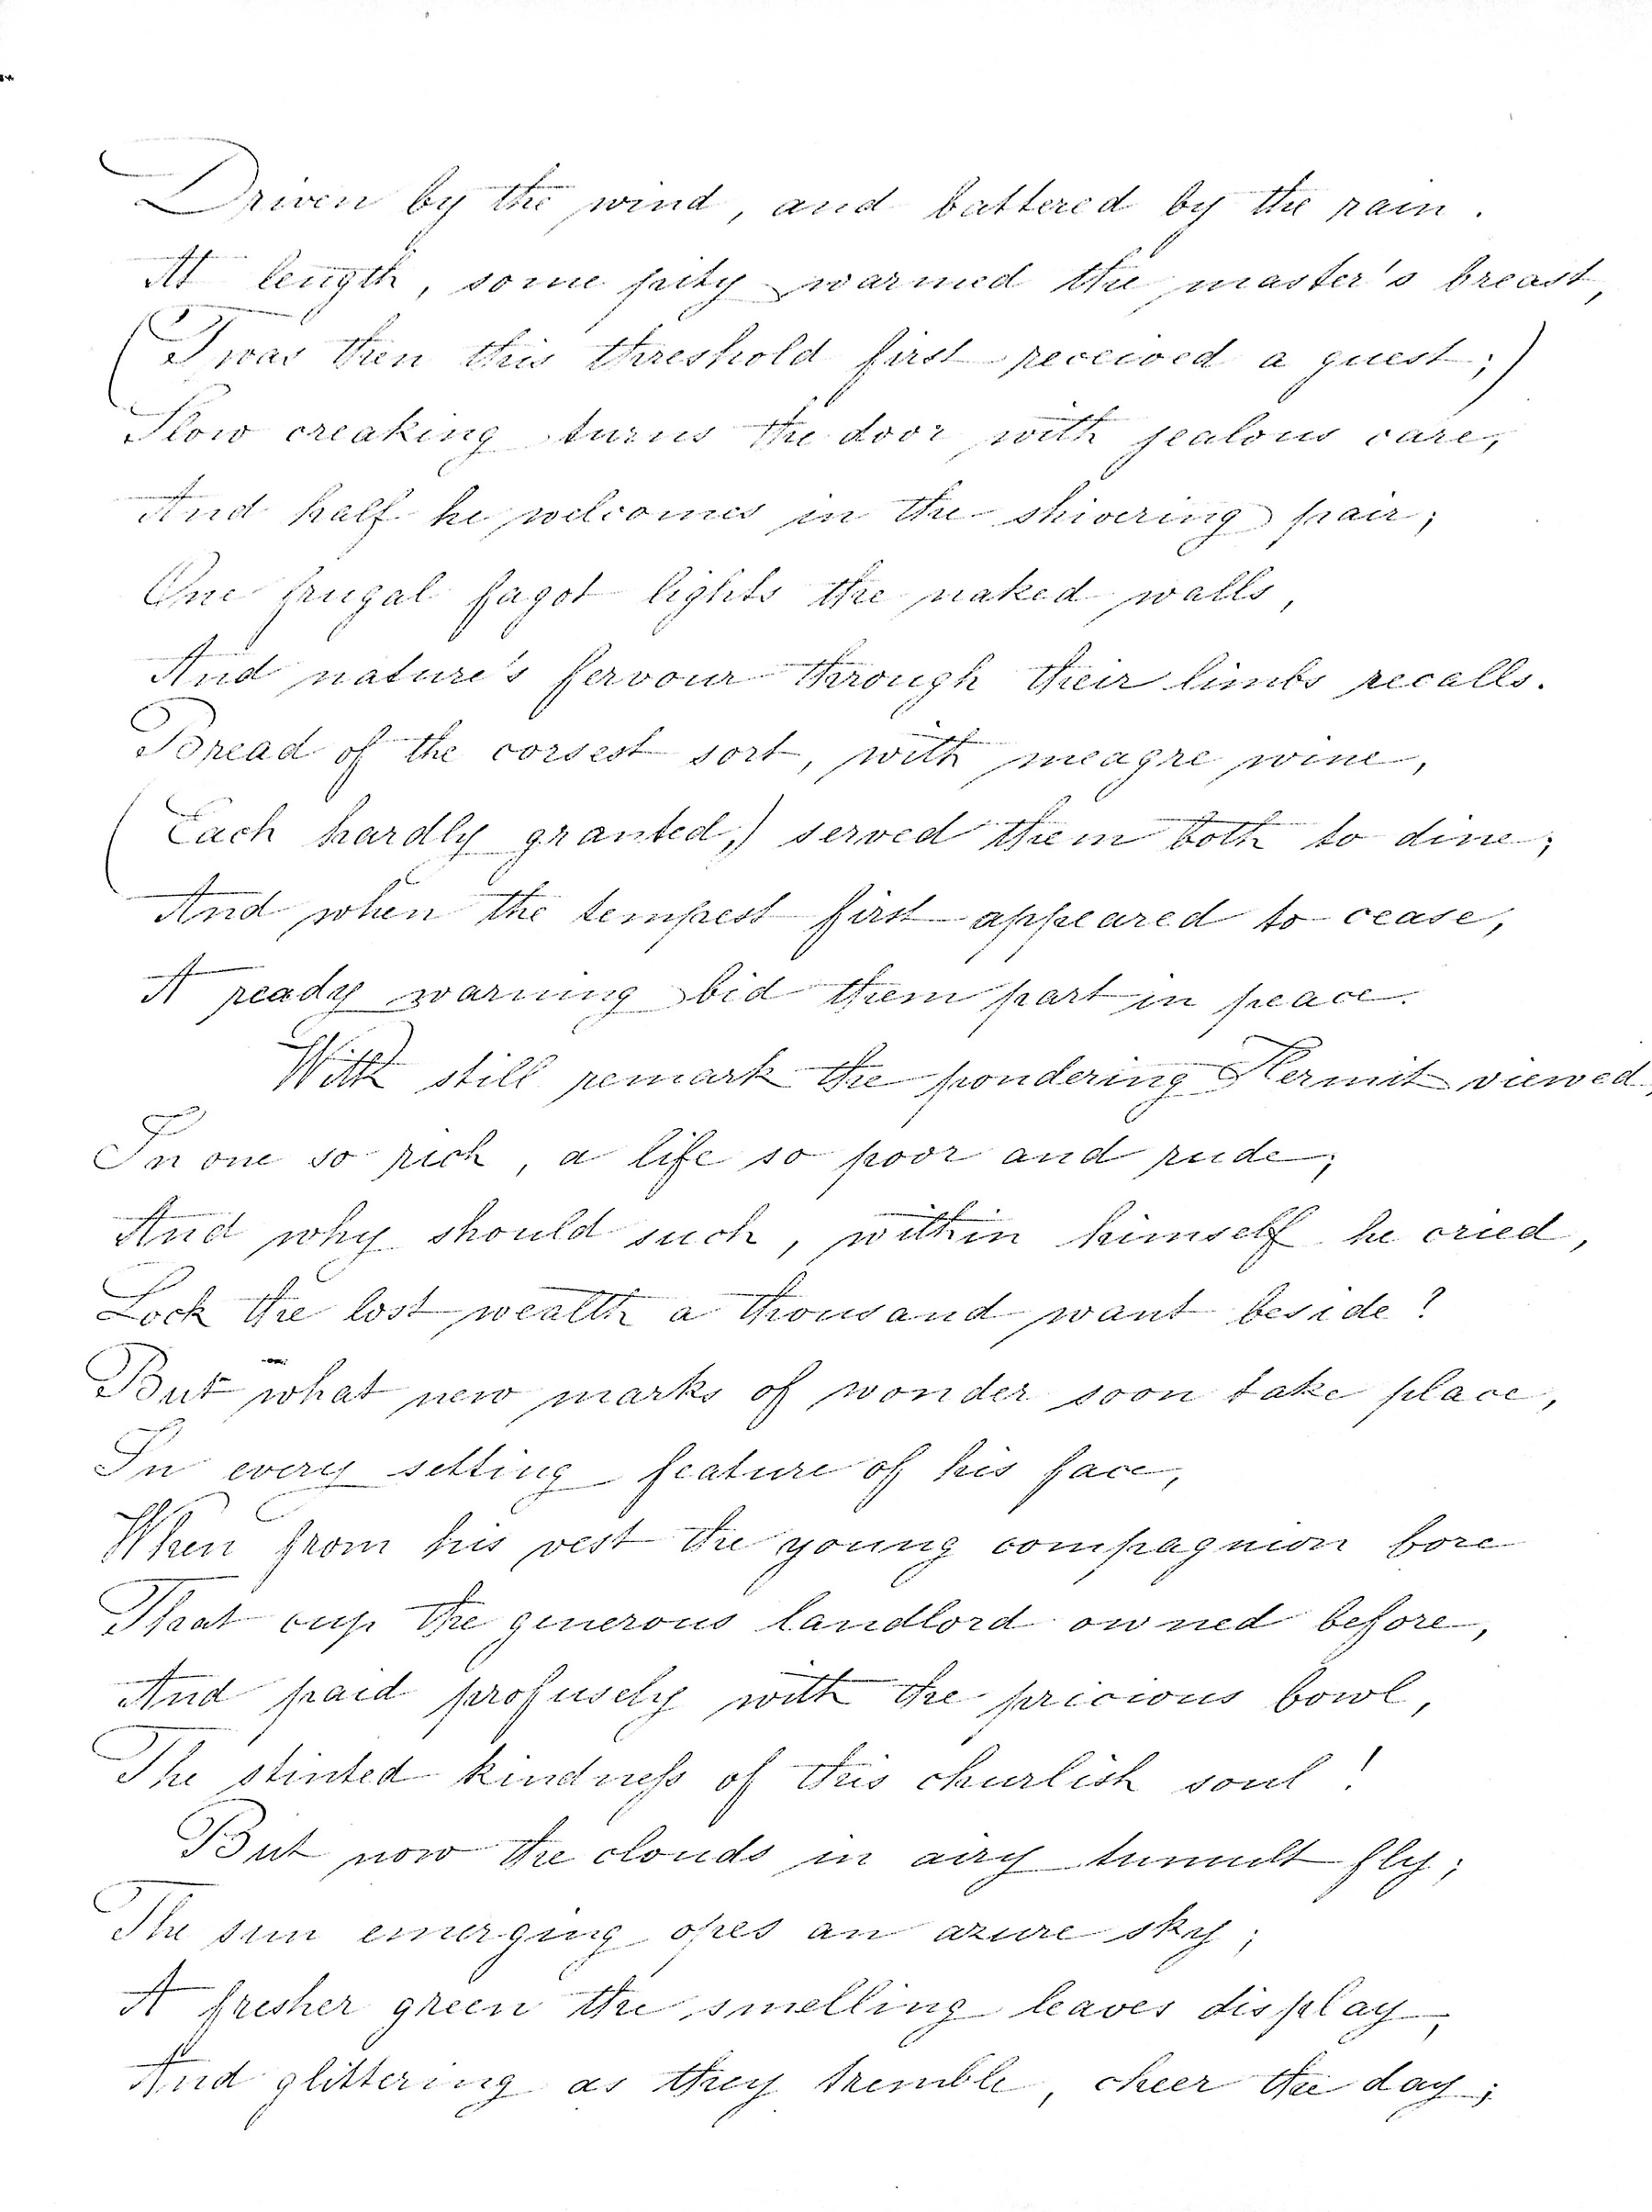 Driven by the wind, and battered by the rain.
At length, some pity warmed the master's breast,
(Twas then this threshold first received a guest;)
Slow creaking turns the door with jealous care,
And half he welcomes in the shivering pair;
One frugal fagot lights the naked walls,
And nature's fervour through their limbs recalls.
Bread of the corsest sort, with meagre wine,
(Each hardly granted,) served them both to dine;
And when the tempest first appeared to cease,
A ready warning bid them part in peace.
With still remark the pondering Hermit viewed,
In one so rich, a life so poor and rude;
And why should such, within himself he cried,
Lock the lost wealth a thousand want beside?
But what new marks of wonder soon take place,
In every setting feature of his face,
When from his vest the young compagnion bore
That cup the generous landlord owned before,
And paid profusely with the pricious bowl,
The stinted kindness of this churlish soul!
But now the clouds in airy tumult fly;
The sun emerging opes an azure sky;
A fresher green the smelling leaves display,
And glittering as they tremble, cheer the day;